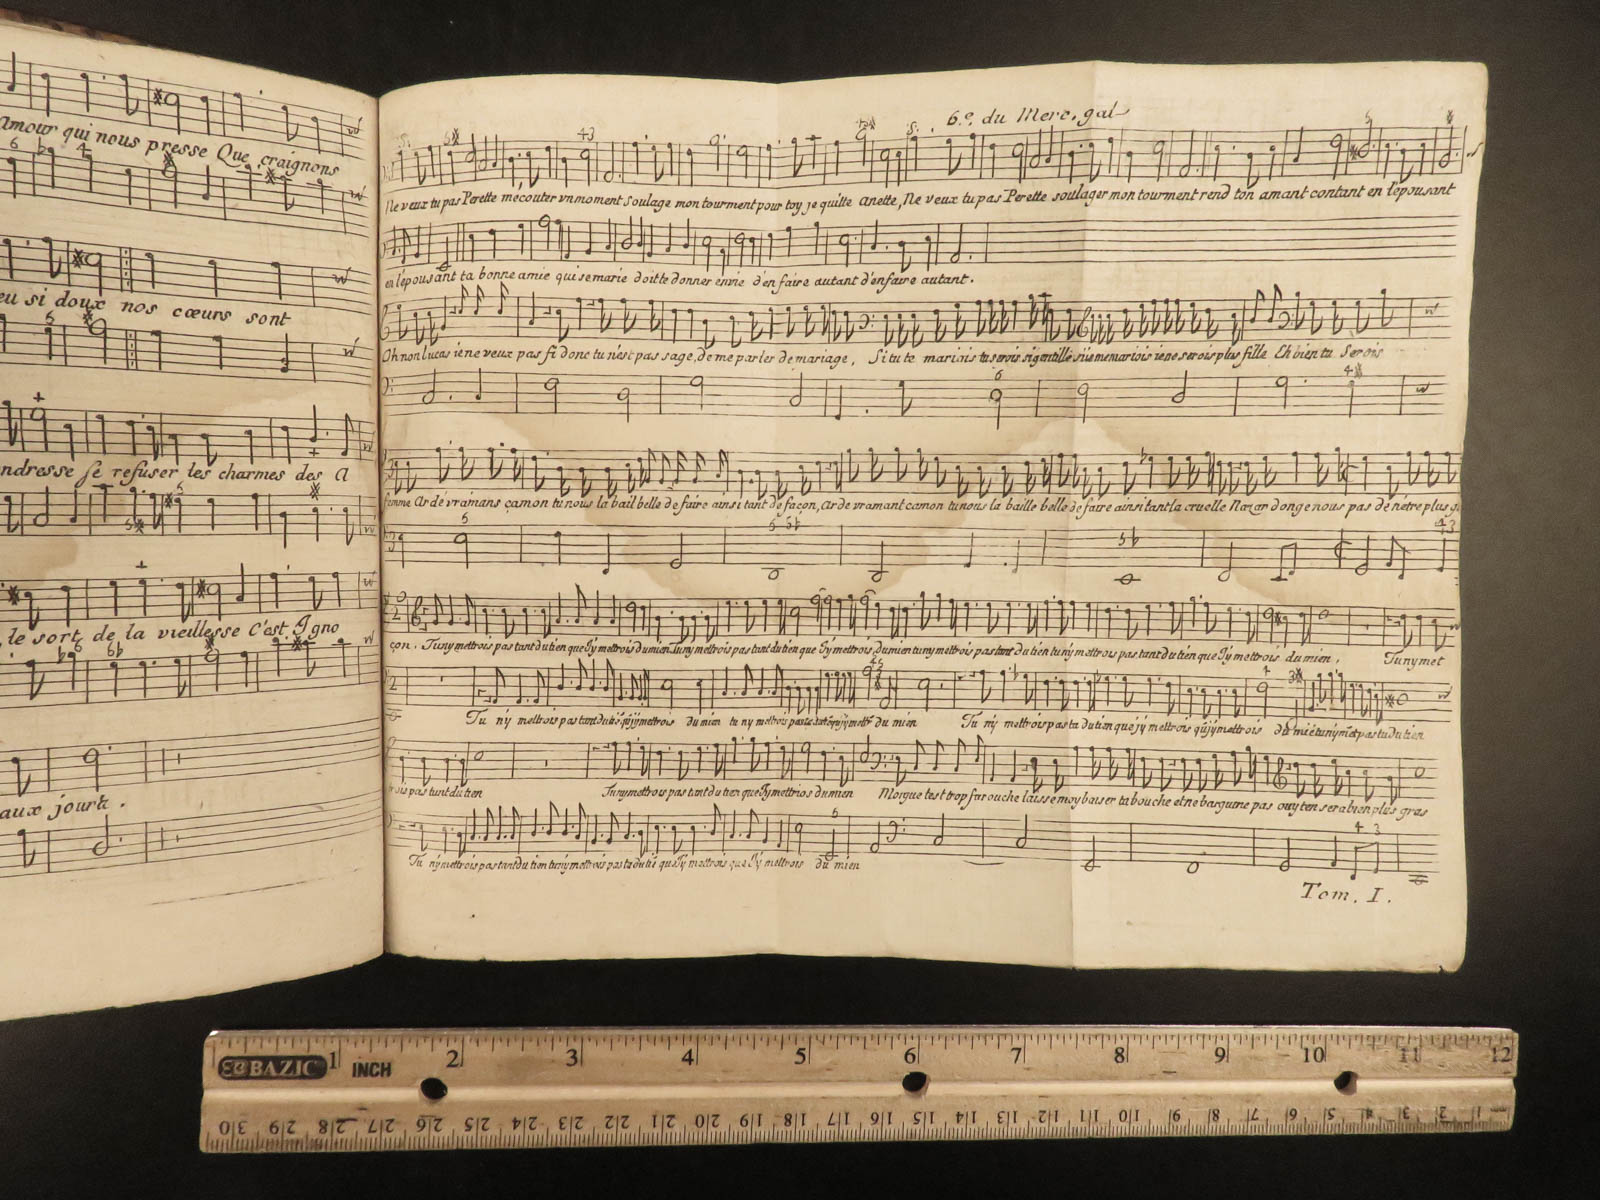 Amour qui nous presse Que craignons
eu si doux nos cœurs sont
ndresse se refuser les charmes des A
le sort de la vieillesse C'est Igno
aux jours.
6.e du Merc. gal
Ne veux tu pas Perette mécouter vn moment Soulage mon tourment pour toy je quitte anette, Ne veux tu pas Perette soulager mon tourment rend ton amant contant en l'épousant
en l'épousant ta bonne amie qui se marie doit te donner envie d'en faire autant d'en faire autant.
Oh non lucas ie ne veux pas fi donc tu n'est pas sage, de me parler de mariage, Si tu te mariois tu serois si gentille si ie me mariois ie ne serois plus fille Eh bien tu Serois
femme Ardé vraimans camon tu nous la bail belle de faire ainsi tant de façon, Ardé vramant camon tu nous la baille belle de faire ainsi tant la cruelle Nazar donge nous pas de n'etre plus g
çon. Tu ny mettrois pas tant du tien que J'y mettrois du mien Tu ny mettrois pas tant du tien que J'y mettrois, du mien tu ny mettrois pas tant du tien tu ny mettrois pas tant du tien que J'y mettrois du mien. Tu ny met
Tu n'y mettrois pas tant du tié qu jy mettrois du mien tu ny mettrois pas du mien Tu n'y mettrois pas ta du tien que jy mettrois qu jy mettrois du mié tu ny met pas tu du tien
trois pas tant du tien Tu ny mettrois pas tant du tien que Jy mettrios du mien Morgue test trop farouche laisse moy baiser ta bouche et ne barguine pas ouy t'en sera bien plus gras
Tu ny mettrois pas tant du tien tu ny mettrois pas ta du tié que J'y mettrois que J'y mettrois du mien
Tom. I.
BAZIC
1 INCH 2 3 4 5 6 7 8 9 10 11 12
30 29 28 27 26 25 24 23 22 21 20 19 18 17 16 15 14 13 12 11 10 9 8 7 6 5 4 3 2 1